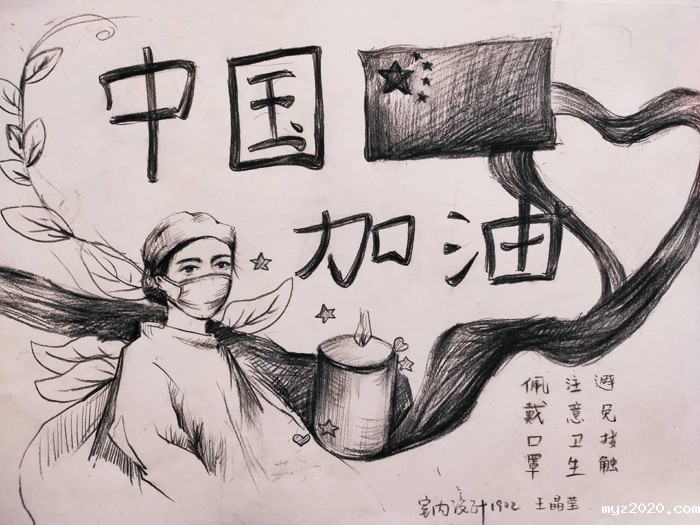 中国
加油
避免接触
注意卫生
佩戴口罩
室内设计1902 王晶莹
myz2020.com